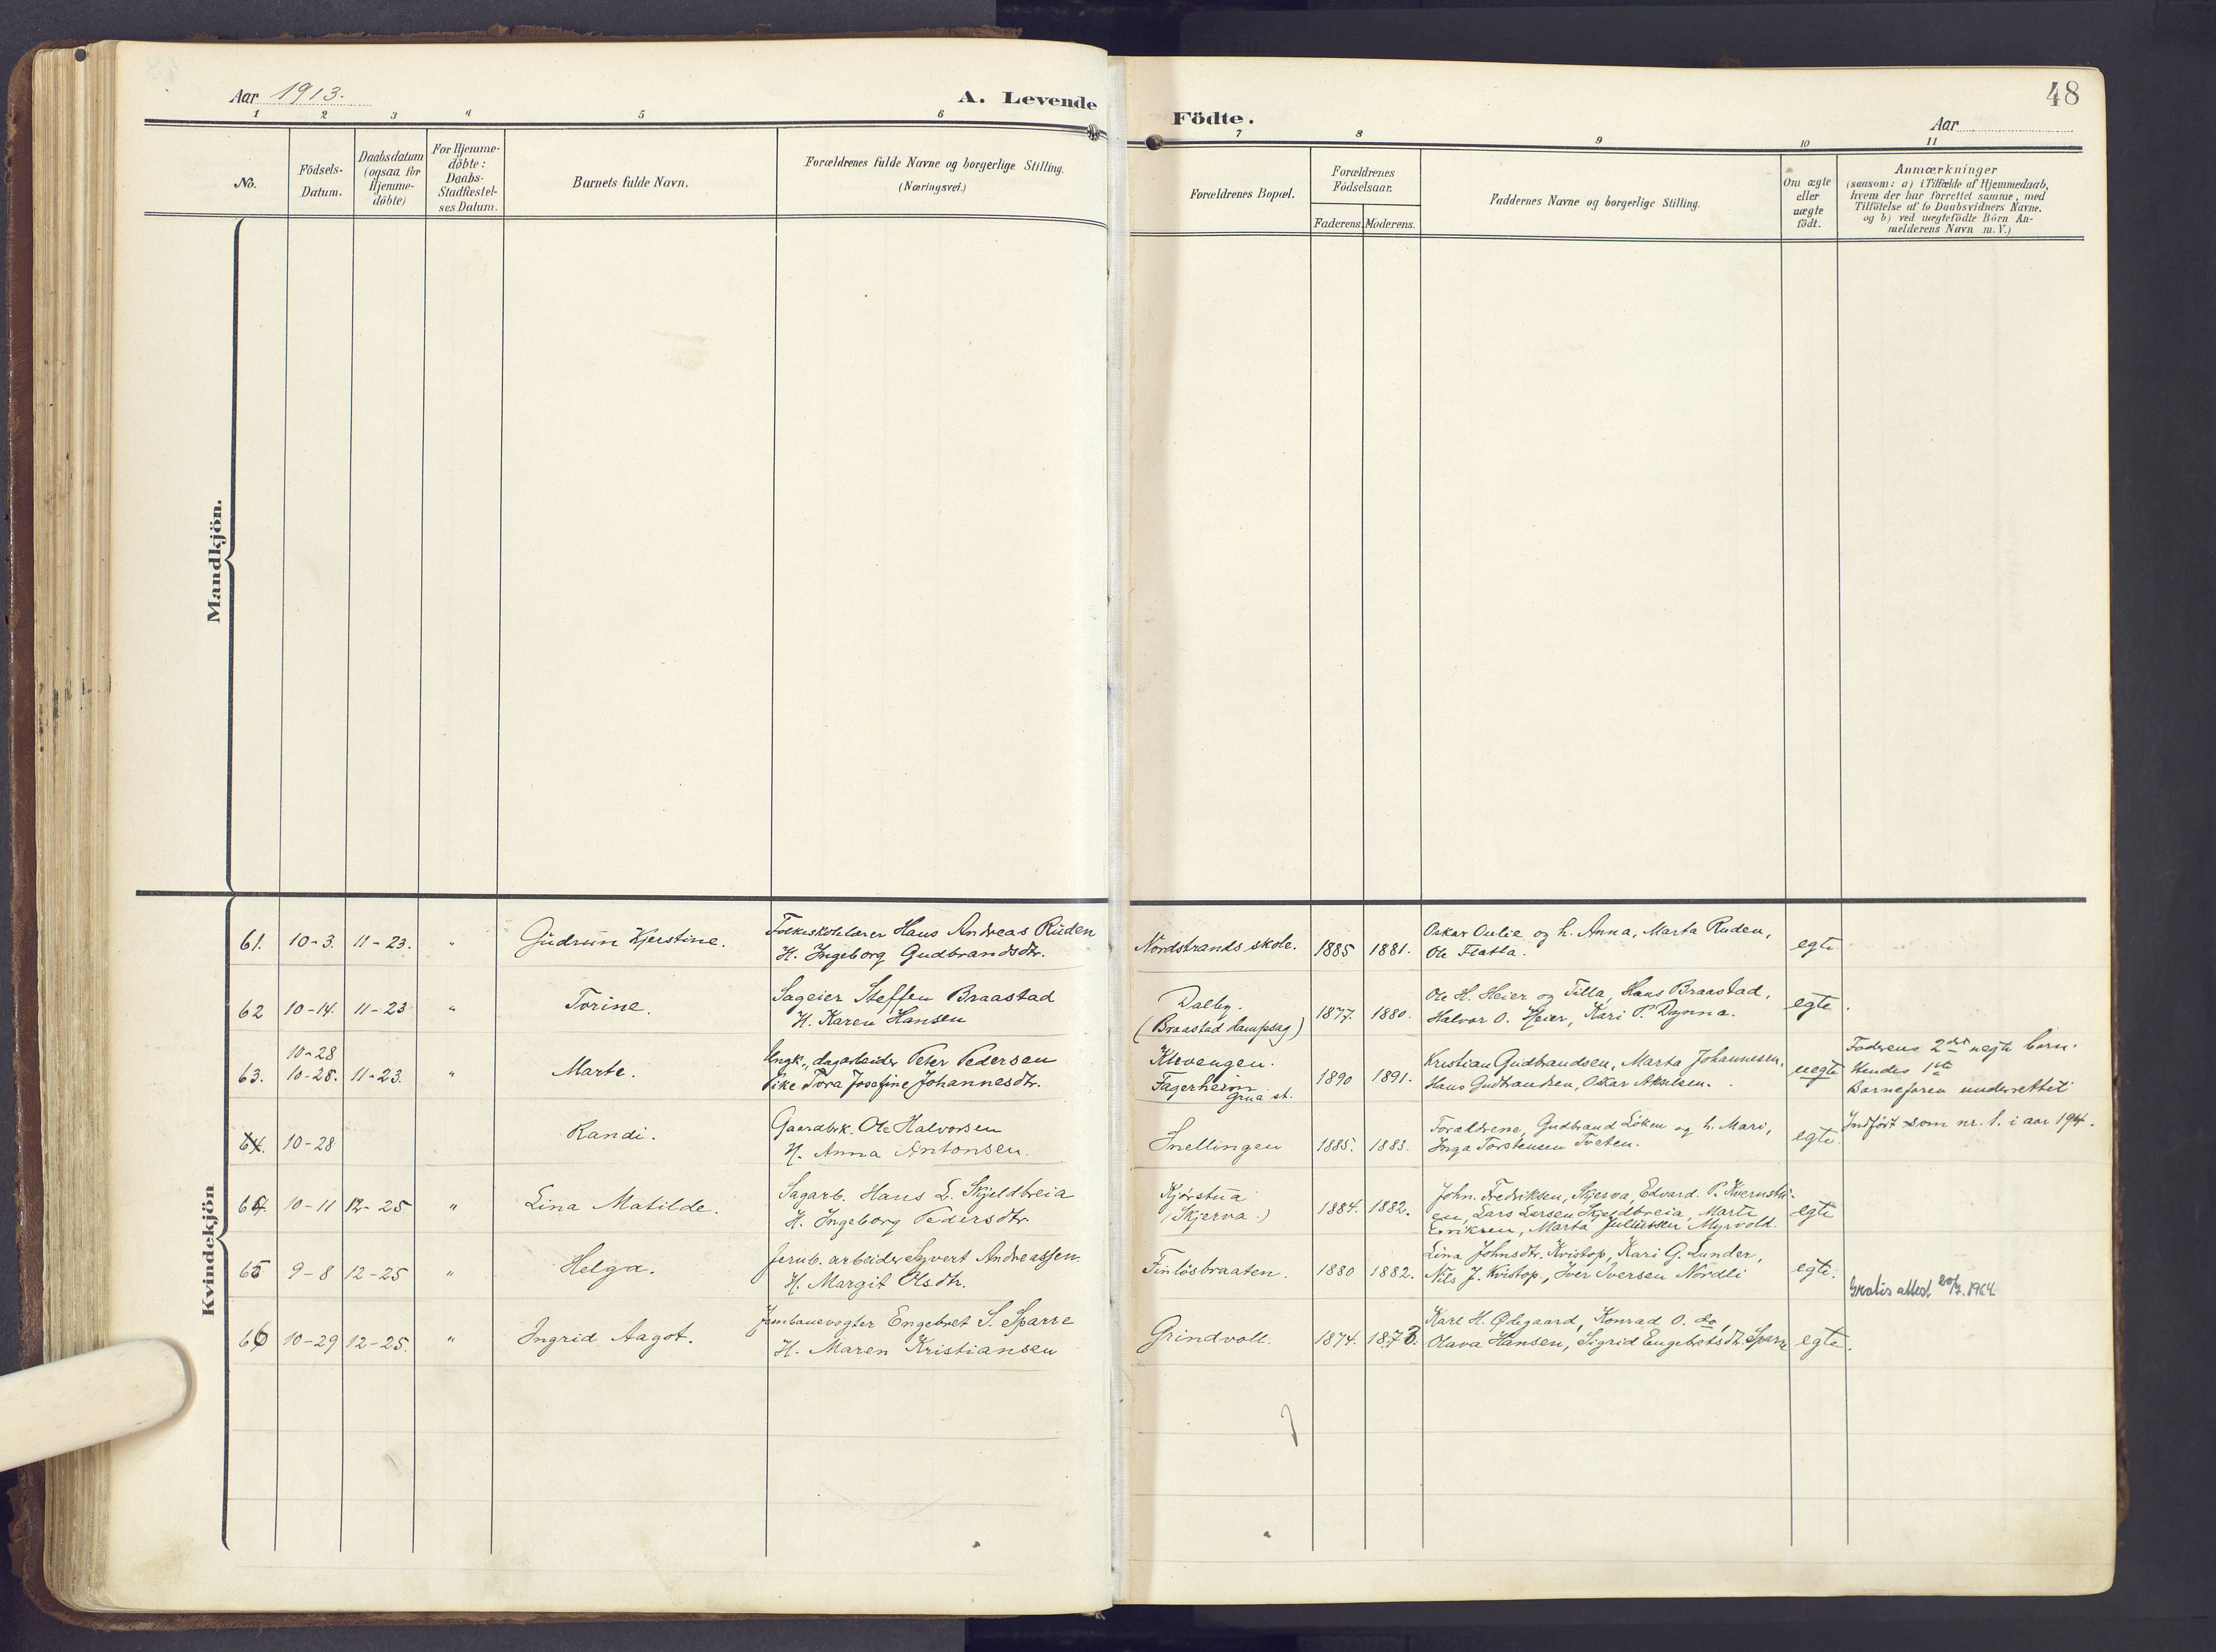 Aar 1913.
A. Levende
Födte.
Aar
48
1 2 3 4 5 6 7 8 9 10 11
No.
Födsels-
Datum.
Daabsdatum
(ogsaa for
Hjemme-
döbte)
For Hjemme-
döbte:
Daabs-
Stadfæstel-
ses Datum.
Barnets fulde Navn.
Forældrenes fulde Navne og borgerlige Stilling.
(Næringsvei.)
Forældrenes Bopæl.
Forældrenes
Födselsaar.
Faderens. Moderens.
Faddernes Navne og borgerlige Stilling.
Om ægte
eller
uægte
födt.
Anmærkninger
(saasom: a) i Tilfælde af Hjemmedaab,
hvem der har forrettet samme, med
Tilföielse af to Daabsvidners Navne.
og b) ved uægtefödte Börn An-
melderens Navn m. V.)
Mandkjön.
Kvindekjön
61. 10-3. 11-23. " Gudrun Kjerstine.
Folkeskolelærer Hans Andreas Ruden
H. Ingeborg Gudbrandsdtr.
Nordstrands skole. 1885 1881.
Oskar Oulie og h. Anna, Marta Ruden,
Ole Flatla.
egte
62 10-14. 11-23 " Torine.
Sageier Steffen Braastad
H. Karen Hansen
Dalby.
(Braastad dampsag)
1877. 1880.
Ole H. Heier og Tilla, Hans Braastad,
Halvor O. Heier, Kari P. Dynna.
egte.
10-28
63. 10-28. 11-23. " Marte.
Ungk., dagarbeider Peter Pedersen
Pike Tora Josefine Johannesdtr.
Klevengen.
Fagerheim
Grua st.
1890 1891.
Kristian Gudbrandsen, Marta Johannesen,
Hans Gudbrandsen, Oskar Akselsen.
uegte
Faderens 2det uegte barn.
Hendes 1ste
Barnefaren underrettet
64. 10-28 Randi.
Gaardbrk. Ole Halvorsen
H. Anna Antonsen.
Snellingen 1885. 1883.
Forældrene, Gudbrand Löken og h. Mari,
Inga Torstensen Tveten.
egte.
Indfört som nr. 1. i aar 1914.
64. 10-11 12-25 " Lina Matilde.
Sagarb. Hans L. Skjeldbreia
H. Ingeborg Pedersdtr.
Kjörstua
(Skjerva)
1884. 1882.
John Fredriksen, Skjerva, Edvard P. Kvernstu-
en, Lars Larsen Skjeldbreia, Marte
Eriksen, Marta Juliussen Myrvold.
egte
65 9-8 12-25 " Helga.
Jernb. arbeider Syvert Andreassen.
H. Margit Olsdtr.
Finlösbraaten. 1880 1882.
Lina Johnsdtr. Kvistop, Kari G. Lunder,
Nils J. Kvistop, Iver Iversen Nordli
egte.
Gratis attest 1964.
66 10-29 12-25. " Ingrid Aagot.
Jernbanevogter Engebret S. Sparre
H. Maren Kristiansen
Grindvoll. 1874. 1873.
Karl H. Ödegaard, Konrad O. do,
Olava Hansen, Sigrid Engebretsdtr. Sparre
egte.